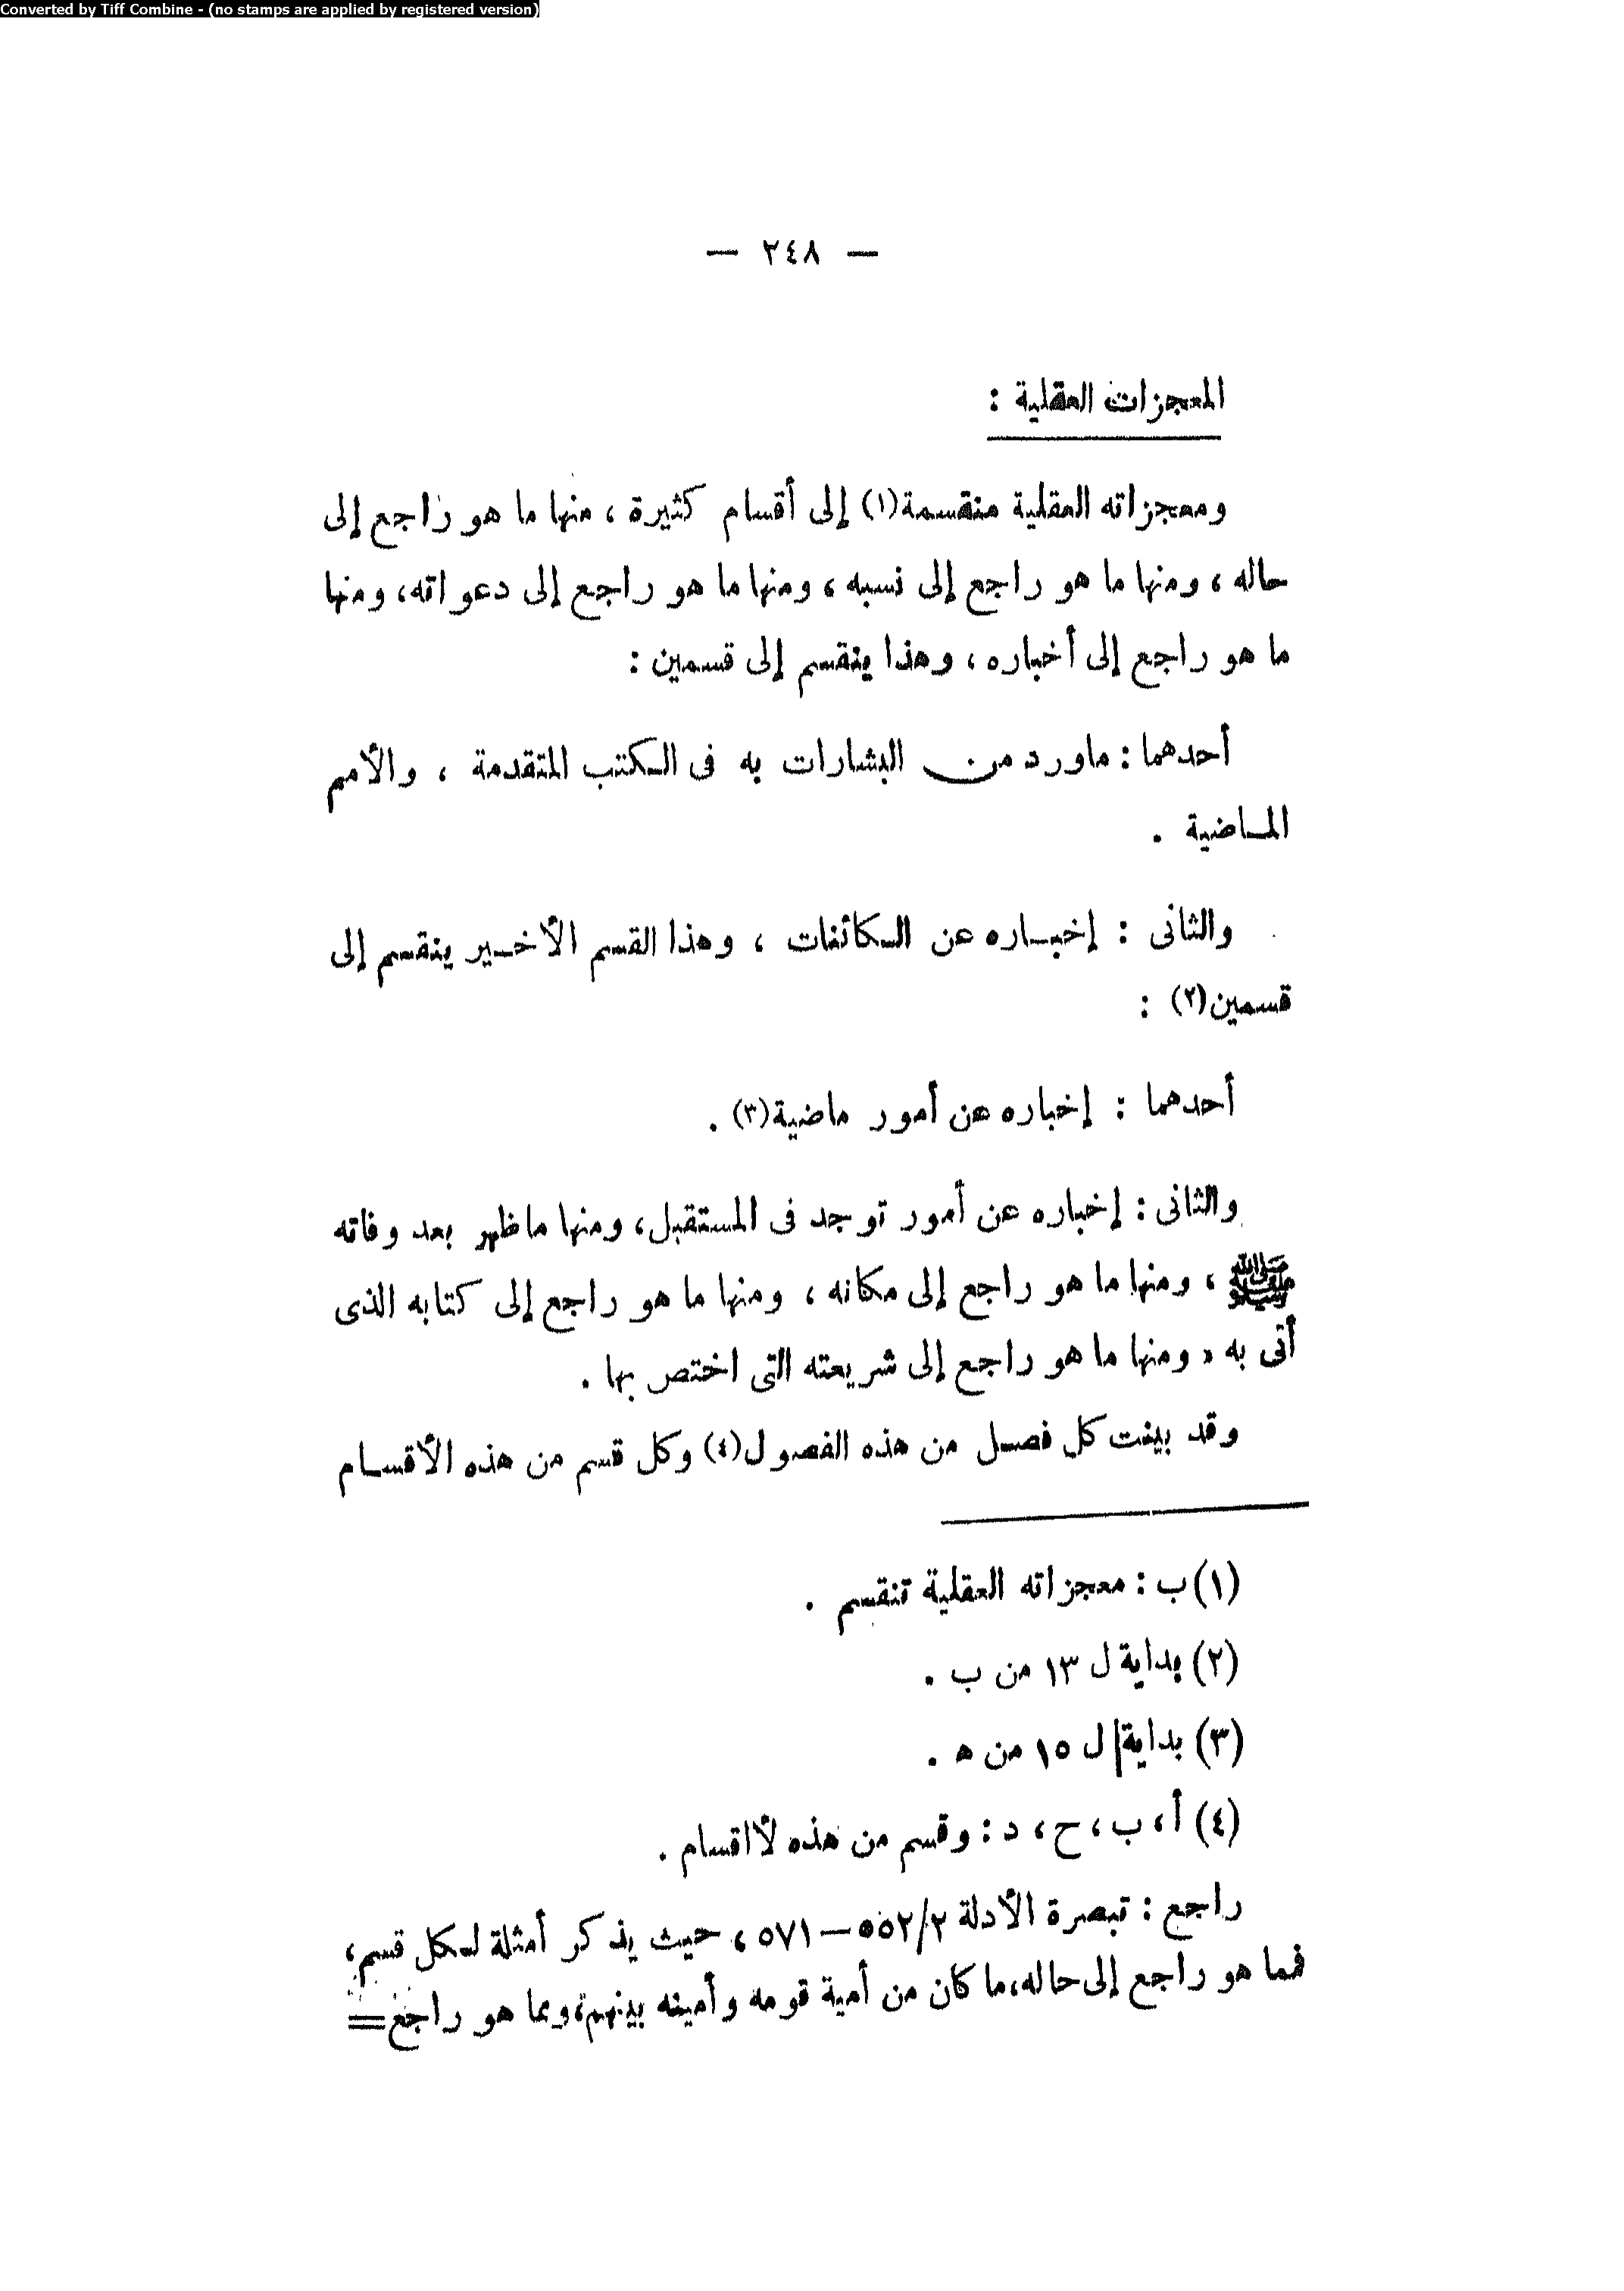 Converted by Tiff Combine - (no stamps are applied by registered version)
— ٢٤٨ —
المعجزات العقلية :
ومعجزاته العقلية منقسمة(١) إلى أقسام كثيرة ، منها ما هو راجع إلى
حاله ، ومنها ما هو راجع إلى نسبه ، ومنها ما هو راجع إلى دعواته، ومنها
ما هو راجع إلى أخباره ، وهذا ينقسم إلى قسمين :
أحدهما : ماورد من البشارات به فى الكتب المتقدمة ، والأمم
الماضية .
والثانى : إخباره عن الكائنات ، وهذا القسم الأخير ينقسم إلى
قسمين(٢) :
أحدهما : إخباره عن أمور ماضية(٣) .
والثانى : إخباره عن أمور توجد فى المستقبل، ومنها ماظهر بعد وفاته
ﷺ ، ومنها ما هو راجع إلى مكانه ، ومنها ما هو راجع إلى كتابه الذى
أتى به ، ومنها ما هو راجع إلى شريعته التى اختص بها .
وقد بينت كل فصل من هذه الفصول(٤) وكل قسم من هذه الأقسام
(١) ب : معجزاته العقلية تنقسم .
(٢) بداية ل ١٣ من ب .
(٣) بداية ل ١٥ من ه .
(٤) أ ، ب ، ح ، د : وقسم من هذه لأاقسام .
راجع : تبصرة الأدلة ٥٥٢/٢ — ٥٧١ ، حيث يذكر أمثلة لكل قسم،
فما هو راجع إلى حاله، ما كان من أمية قومه وأمينه بينهم، ومما هو راجع =